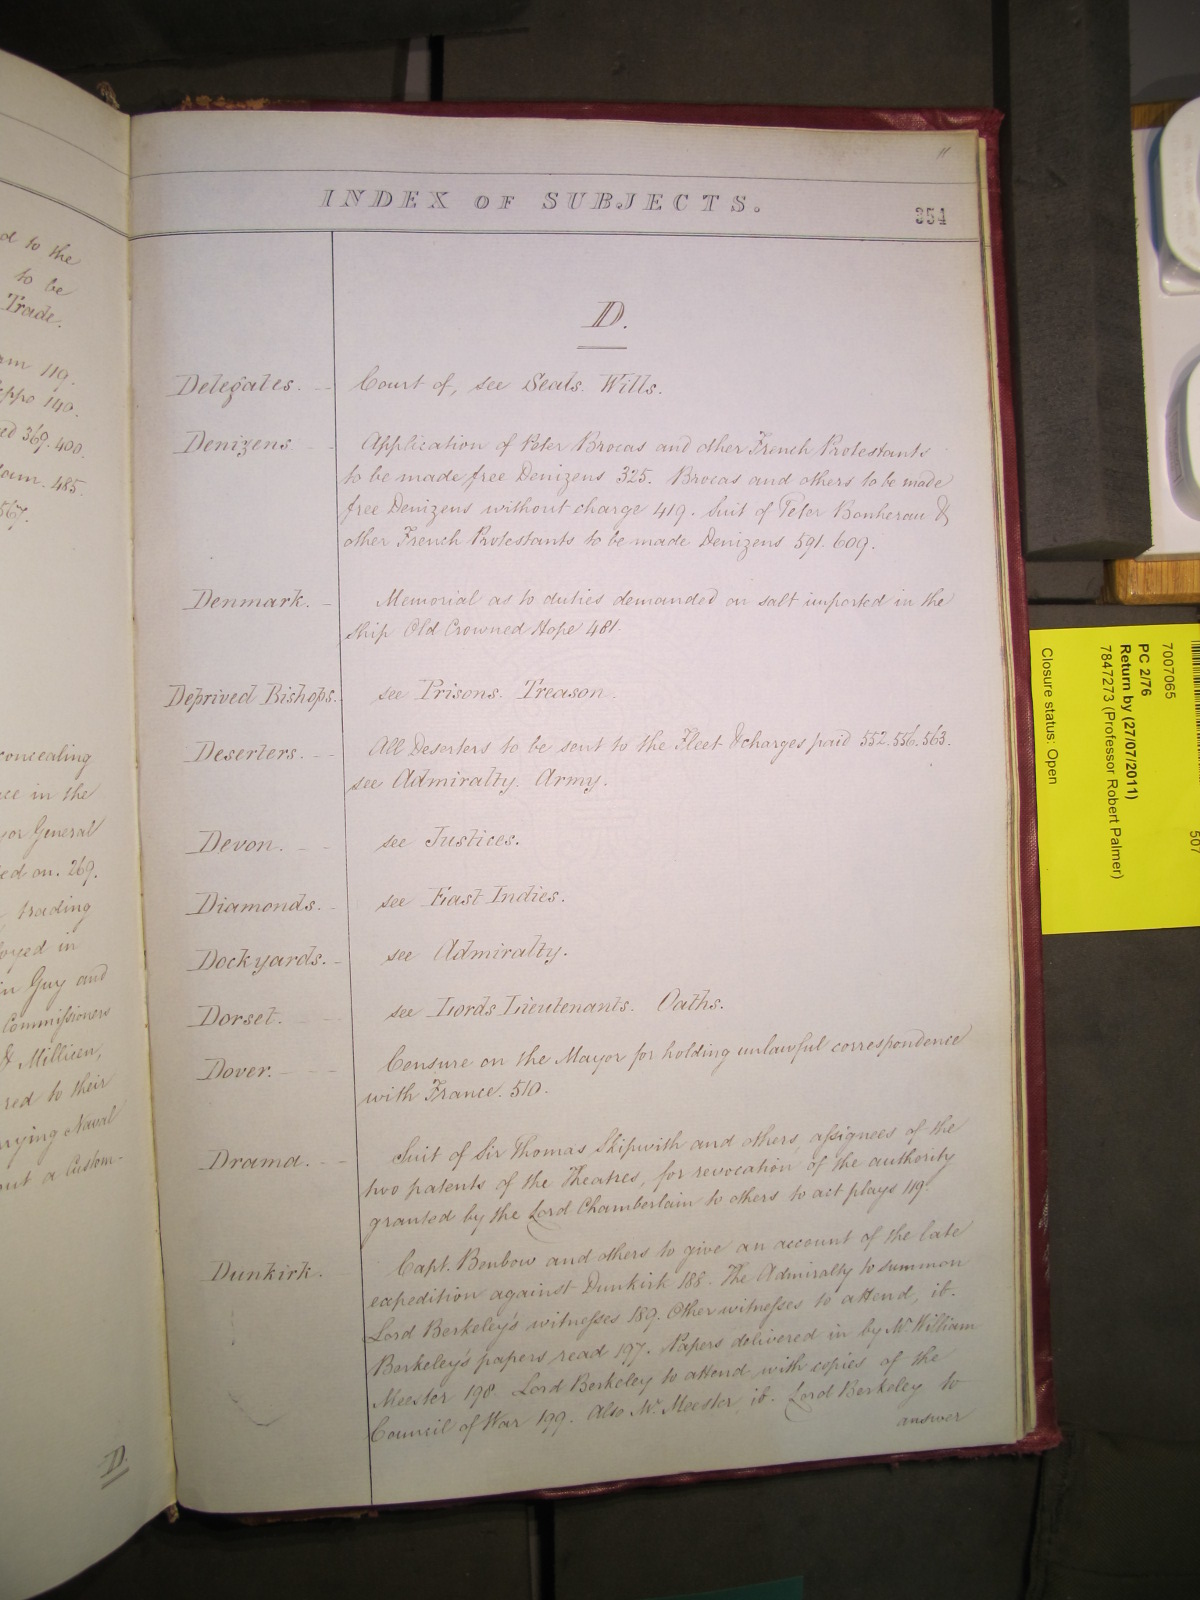 d to the
to be
Trade.
am 119.
ppo 140.
ed 369. 400.
oam. 485.
567.
concealing
ce in the
jor General
ed on. 269.
trading
loyed in
in Guy and
Commissioners
& Millien,
red to their
rrying Naval
out a Custom-
D.
11
INDEX OF SUBJECTS.
354
D.
Delegates. Court of, see Seals. Wills.
Denizens Application of Peter Brocas and other French Protestants
to be made free Denizens 325. Brocas and others to be made
free Denizens without charge 419. Suit of Peter Bonherau &
other French Protestants to be made Denizens 591. 609.
Denmark. Memorial as to duties demanded on salt imported in the
ship Old Crowned Hope 481.
Deprived Bishops. see Prisons. Treason.
Deserters. All Deserters to be sent to the Fleet & charges paid 552. 556. 563.
see Admiralty. Army.
Devon. see Justices.
Diamonds. see East Indies.
Dockyards. see Admiralty.
Dorset. see Lords Lieutenants. Oaths.
Dover. Censure on the Mayor for holding unlawful correspondence
with France. 510.
Drama. Suit of Sir Thomas Skipwith and others, assignees of the
two patents of the Theatres, for revocation of the authority
granted by the Lord Chamberlain to others to act plays 119.
Dunkirk. Capt. Benbow and others to give an account of the late
expedition against Dunkirk 188. The Admiralty to summon
Lord Berkeley's witnesses 189. Other witnesses to attend, ib.
Berkeley's papers read 197. Papers delivered in by Mr. William
Meester 198. Lord Berkeley to attend with copies of the
Council of War 199. Also Mr. Meester, ib. Lord Berkeley to
answer
7007065
507
PC 2/76
Return by (27/07/2011)
7847273 (Professor Robert Palmer)
Closure status: Open